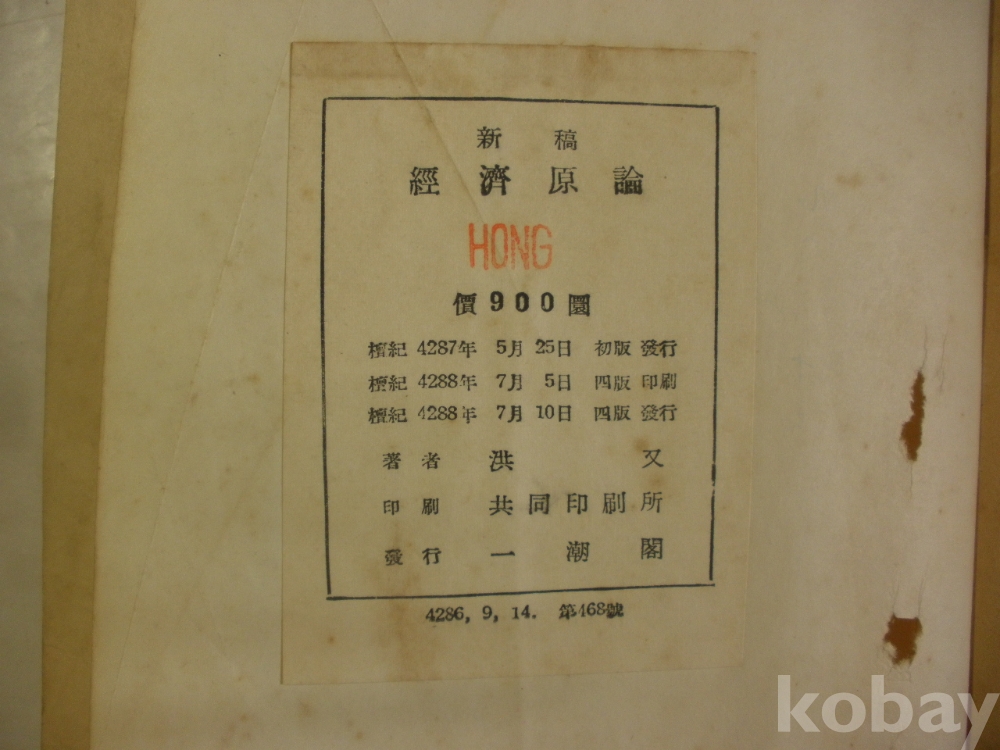 新稿
經濟原論
HONG
價 900 圜
檀紀 4287年 5月 25日 初版 發行
檀紀 4288年 7月 5日 四版 印刷
檀紀 4288年 7月 10日 四版 發行
著者 洪又
印刷 共同印刷所
發行 一潮閣
4286, 9, 14. 第468號
kobay